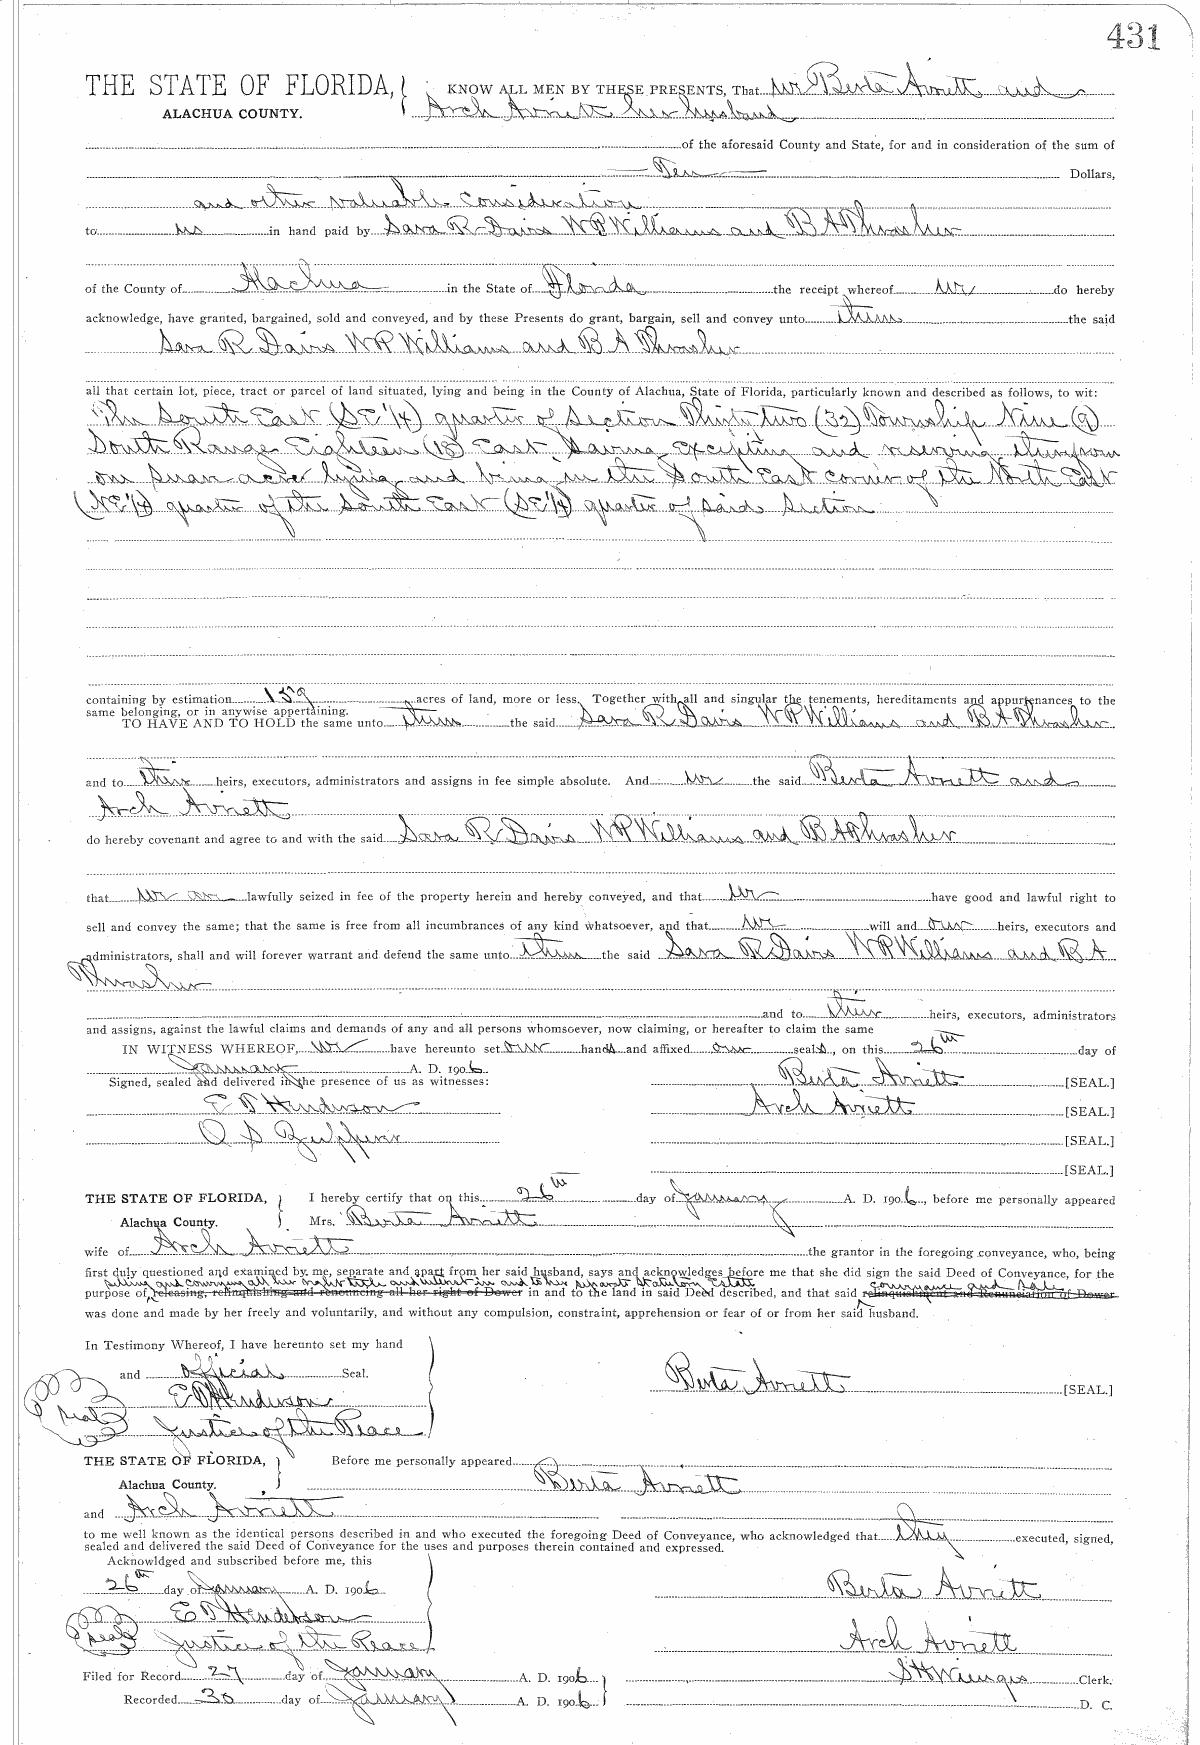 431
THE STATE OF FLORIDA, KNOW ALL MEN BY THESE PRESENTS, That we Berta Avnett and
ALACHUA COUNTY. Arch Avnett her husband
of the aforesaid County and State, for and in consideration of the sum of
Ten Dollars,
and other valuable consideration
to us in hand paid by Sara R Davis W P Williams and B A Thrasher
of the County of Alachua in the State of Florida the receipt whereof we do hereby
acknowledge, have granted, bargained, sold and conveyed, and by these Presents do grant, bargain, sell and convey unto them the said
Sara R Davis W P Williams and B A Thrasher
all that certain lot, piece, tract or parcel of land situated, lying and being in the County of Alachua, State of Florida, particularly known and described as follows, to wit:
The South East (SE 1/4) quarter of Section Thirty two (32) Township Nine (9)
South Range Eighteen (18) East Saving excepting and reserving therefrom
one square acre lying and being in the South East corner of the North East
(NE 1/4) quarter of the South East (SE 1/4) quarter of said Section
containing by estimation 159 acres of land, more or less, Together with all and singular the tenements, hereditaments and appurtenances to the
same belonging, or in anywise appertaining.
TO HAVE AND TO HOLD the same unto them the said Sara R Davis W P Williams and B A Thrasher
and to their heirs, executors, administrators and assigns in fee simple absolute. And we the said Berta Avnett and
Arch Avnett
do hereby covenant and agree to and with the said Sara R Davis W P Williams and B A Thrasher
that we are lawfully seized in fee of the property herein and hereby conveyed, and that we have good and lawful right to
sell and convey the same; that the same is free from all incumbrances of any kind whatsoever, and that we will and our heirs, executors and
administrators, shall and will forever warrant and defend the same unto them the said Sara R Davis W P Williams and B A
Thrasher
and to their heirs, executors, administrators
and assigns, against the lawful claims and demands of any and all persons whomsoever, now claiming, or hereafter to claim the same
IN WITNESS WHEREOF, we have hereunto set our hands and affixed our seals, on this 26th day of
January A. D. 1906
Signed, sealed and delivered in the presence of us as witnesses: Berta Avnett [SEAL.]
E D Henderson Arch Avnett [SEAL.]
O S [SEAL.]
[SEAL.]
THE STATE OF FLORIDA, I hereby certify that on this 26th day of January A. D. 1906, before me personally appeared
Alachua County. Mrs. Berta Avnett
wife of Arch Avnett the grantor in the foregoing conveyance, who, being
first duly questioned and examined by me, separate and apart from her said husband, says and acknowledges before me that she did sign the said Deed of Conveyance, for the
selling and conveying all her right title and interest in and to her separate Statutory Estate conveyance and sale
purpose of releasing, relinquishing and renouncing all her right of Dower in and to the land in said Deed described, and that said relinquishment and Renunciation of Dower
was done and made by her freely and voluntarily, and without any compulsion, constraint, apprehension or fear of or from her said husband.
In Testimony Whereof, I have hereunto set my hand
and official Seal. Berta Avnett [SEAL.]
E D Henderson
Seal Justice of the Peace
THE STATE OF FLORIDA, Before me personally appeared
Alachua County. Berta Avnett
and Arch Avnett
to me well known as the identical persons described in and who executed the foregoing Deed of Conveyance, who acknowledged that they executed, signed,
sealed and delivered the said Deed of Conveyance for the uses and purposes therein contained and expressed.
Acknowldged and subscribed before me, this
26th day of January A. D. 1906 Berta Avnett
E D Henderson
Seal Justice of the Peace Arch Avnett
Filed for Record 27 day of January A. D. 1906 S H Wienges Clerk.
Recorded 30 day of January A. D. 1906 D. C.